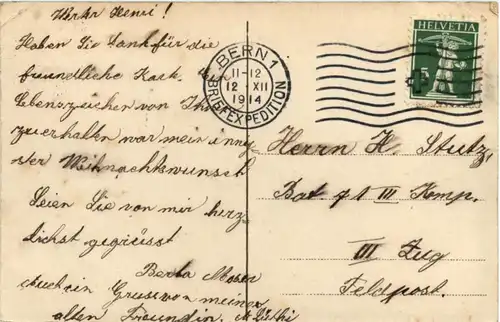 Werter Henri!
Haben Sie Dank für die
freundliche Kark.
Lebenszeichen von Ihnen
zu erhalten war mein innig-
ster Weihnachtswunsch
Seien Sie von mir herz-
lichst gegrüsst
Berta Moser
Auch ein Gruss von meiner
alten Freundin.
BERN 1
11-12
12 XII
1914
BRIEFEXPEDITION
HELVETIA
5
Herrn H. Stutz,
Bat 71 III Komp.
III Zug
Feldpost.